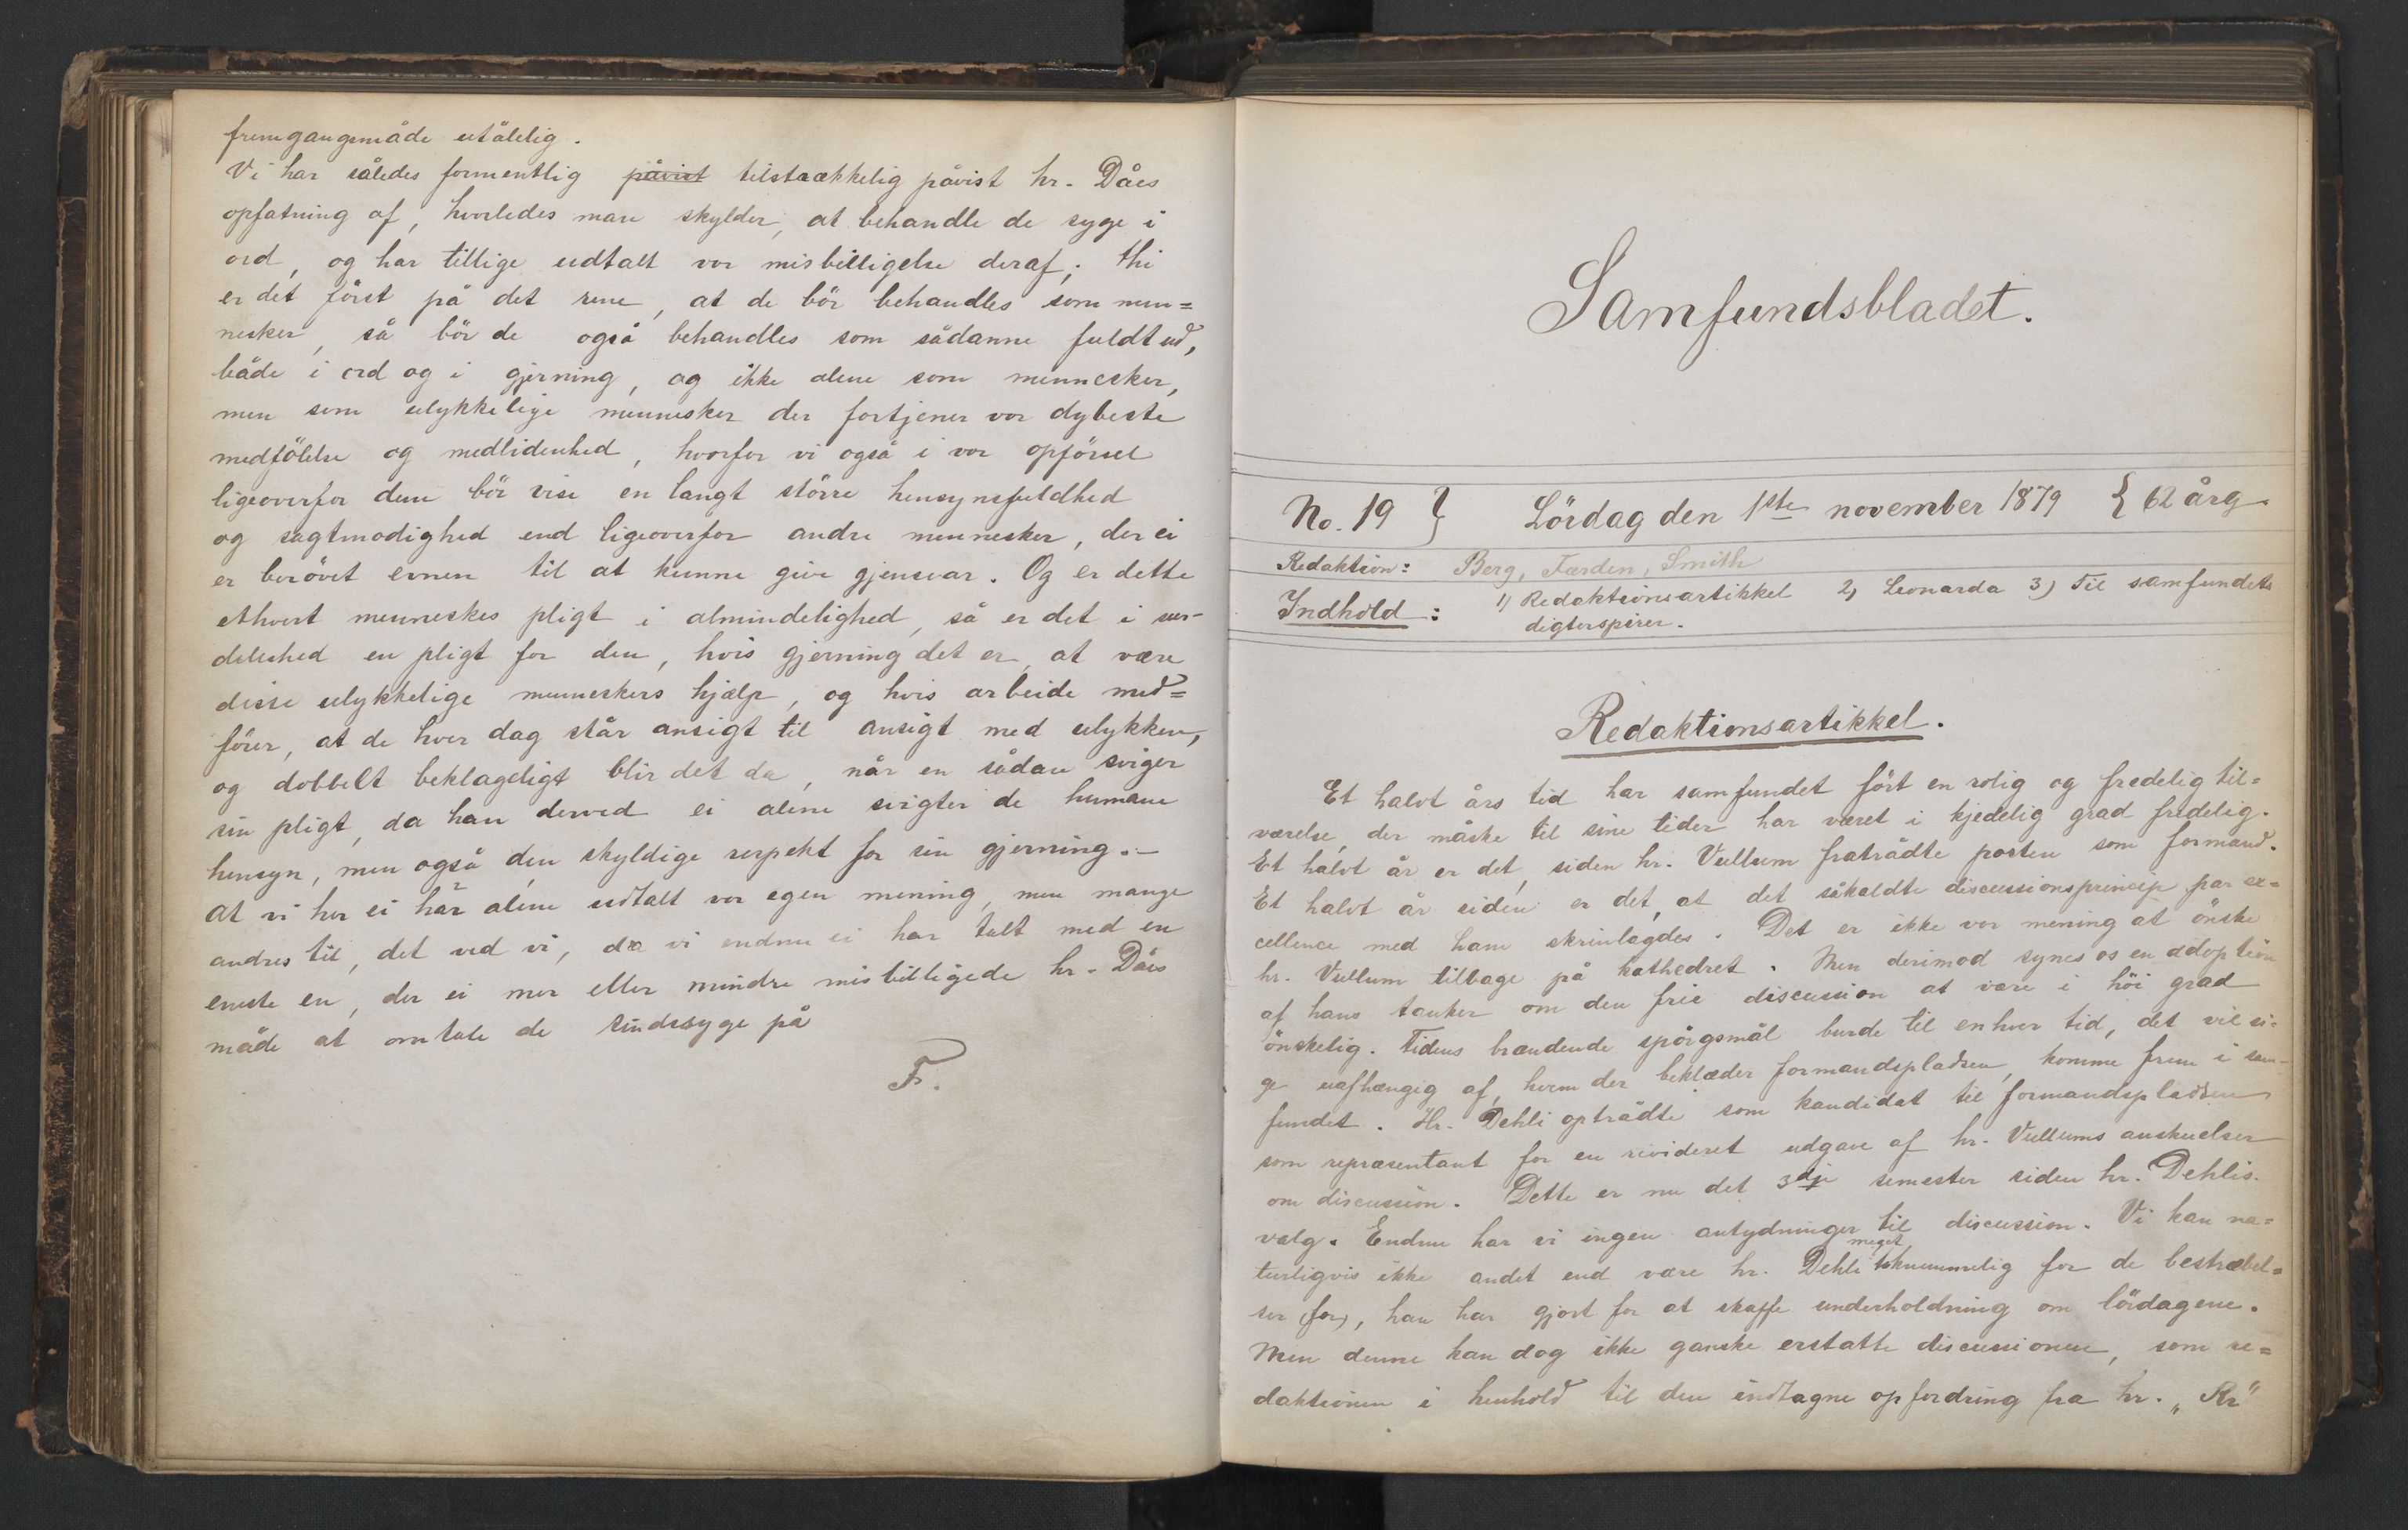 fremgangsmåde utålelig.
Vi har således formentlig påvist tilstrækkelig påvist hr. Dåes
opfatning af, hvorledes man skylder, at behandle de syge i
ord, og har tillige udtalt vor misbilligelse deraf; thi
er det först på det rene, at de bör behandles som men=
nesker, så bör de også behandles som sådanne fuldt ud,
både i ord og i gjerning, og ikke alene som mennesker,
men som ulykkelige mennesker der fortjener vor dybeste
medfölelse og medlidenhed, hvorfor vi også i vor opförsel
ligeoverfor dem bör vise en langt större hensynsfuldhed
og sagtmodighed end ligeoverfor andre mennesker, der ei
er berövet evnen til at kunne give gjensvar. Og er dette
ethvert menneskes pligt i almindelighed, så er det i sær-
deleshed en pligt for den, hvis gjerning det er, at være
disse ulykkelige menneskers hjælp, og hvis arbeide med=
förer, at de hver dag står ansigt til ansigt med ulykken,
og dobbelt beklageligt blir det da, når en sådan sviger
sin pligt, da han derved ei alene svigter de humane
hensyn, men også den skyldige respekt for sin gjerning.-
At vi her ei har alene udtalt vor egen mening, men mange
andres til, det ved vi, da vi endnu ei har talt med en
eneste en, der ei mer eller mindre misbilligede hr. Dåes
måde at omtale de sindssyge på
F.
Samfundsbladet.
No. 19 } Lördag den 1ste november 1879 { 62 årg.
Redaktion: Berg, Færden, Smith
Indhold: 1) Redaktionsartikkel 2) Leonarda 3) Til samfundets
digterspirer.
Redaktionsartikkel.
Et halvt års tid har samfundet fört en rolig og fredelig til=
værelse, der måske til sine tider har været i kjedelig grad fredelig.
Et halvt år er det, siden hr. Vullum fratrådte posten som formand.
Et halvt år siden er det, at det såkaldte discussionsprincip par ex=
cellence med ham skrinlagdes. Det er ikke vor mening at önske
hr. Vullum tilbage på kathedret. Men derimod synes os en adoption
af hans tanker om den frie discussion at være i höi grad
önskelig. Tidens brændende spörgsmål burde til enhver tid, det vil si-
ge uafhængig af, hvem der beklæder formandspladsen, komme frem i sam-
fundet. Hr. Dehli optrådte som kandidat til formandspladsen
som repræsentant for en revideret udgave af hr. Vullums anskuelser
om discussion. Dette er nu det 3dje semester siden hr. Dehlis
valg. Endnu har vi ingen antydninger til discussion. Vi kan na=
turligvis ikke andet end være hr. Dehli meget taknemmelig for de bestræbel=
ser (for), han har gjort for at skaffe underholdning om lördagene.
Men denne kan dog ikke ganske erstatte discussionen, som re=
daktionen i henhold til den indtagne opfordring fra hr. „Kr"